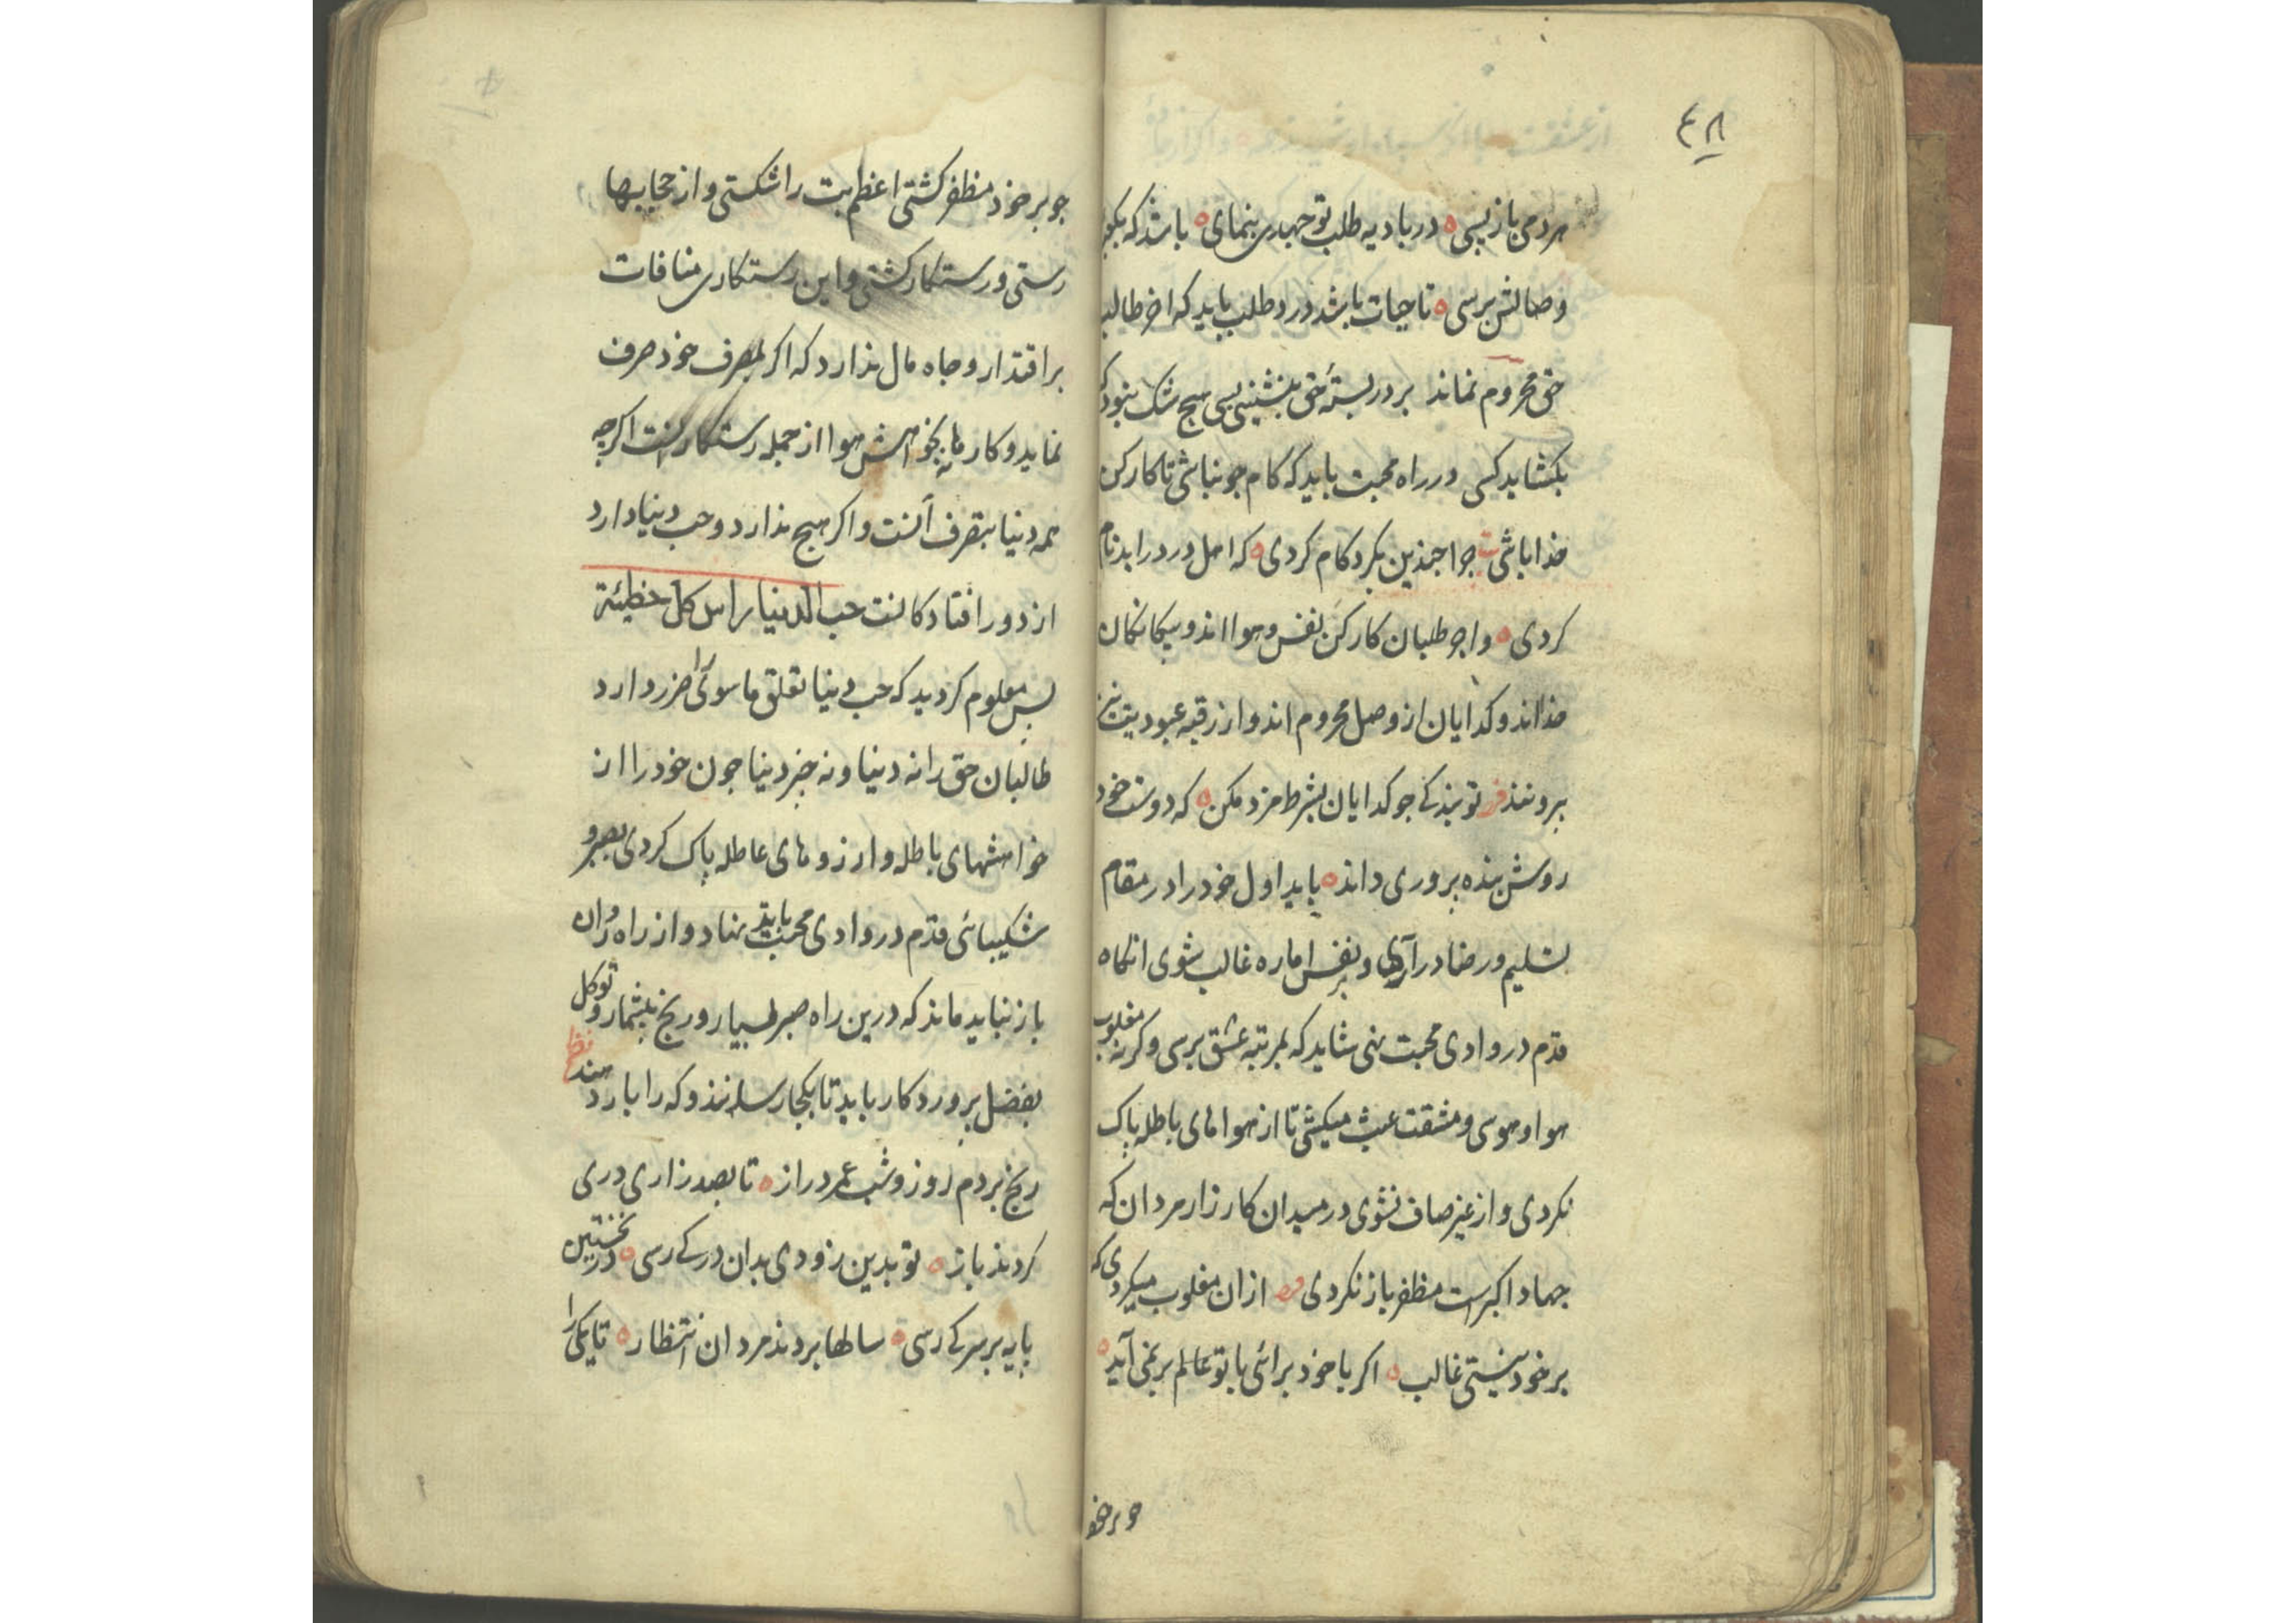 ۴۸
هر دمی باز پسی ه در بادیه طلب تو جهدی بنمای ه باشد که بکوی
وصالش برسی ه تا حیات باشد درد طلب باید که اخر طالب
حق محروم نماند بر در بستهٔ حق بنشینی بسی هیچ شک نبود که
بکشاید کسی در راه محبت باید که کام جو نباشی تا کارکن
خدا باشی جو اجنذین بکرد کام کردی ه که اهل درد را بدنام
کردی ه واجر طلبان کارکن نفس و هوا اند و بیکانکان
خدا اند و کدایان از وصل محروم اند و از رقبه عبودیت نیز
بروننذ تو بندکی جو کدایان بشرط مزد مکن ه که دوست خود
روش بنده پروری داند ه باید اول خود را در مقام
تسلیم و رضا در آری و بر نفس اماره غالب شوی انکاه
قدم در وادی محبت نهی شاید که بمرتبه عشق برسی و کرنه مغلوب
هوا و هوسی و مشقت عبث میکشی تا از هواهای باطله پاک
نکردی و از غیر صاف نشوی در میدان کارزار مردان که
جهاد اکبر است مظفر باز نکردی از ان مغلوب میکردی که
بر خود نیستی غالب ه اکر با خود برائی با تو عالم بر نمی آید ه
جو بر خو
جو بر خود مظفر کشتی اعظم بت را شکستی و از حجابها
رستی و رستکار کشتی و این رستکاری منافات
بر اقتدار و جاه مال نذارد که اکر بمصرف خود صرف
نماید و کارها نه بخواهش هوا از جمله رستکارانست اکرچه
همه دنیا بتصرف آنست و اکر هیچ نذارد و حب دنیا دارد
از دور افتادکانست حب الدنیا راس کل خطیئة
پس معلوم کردید که حب دنیا تعلق ماسوی ضرر دارد
طالبان حق را نه دنیا و نه جز دنیا جون خود را از
خواهشهای باطله و ارزوهای عاطله پاک کردی بصبر و
شکیبائی قدم در وادی محبت باید نهاد و از راه روان
باز نباید ماند که درین راه صبر بسیار و رنج بیشمار و توکل
بفضل پروردکار باید تا بکجا رسانند و که را بار دهند نظم
رنج بردم روز و شب عمر دراز ه تا بصد زاری دری
کردند باز ه تو بدین زودی بدان در کی رسی ه در نخستین
پایه بر سر کی رسی ه سالها بردند مردان انتظار ه تا یکی را